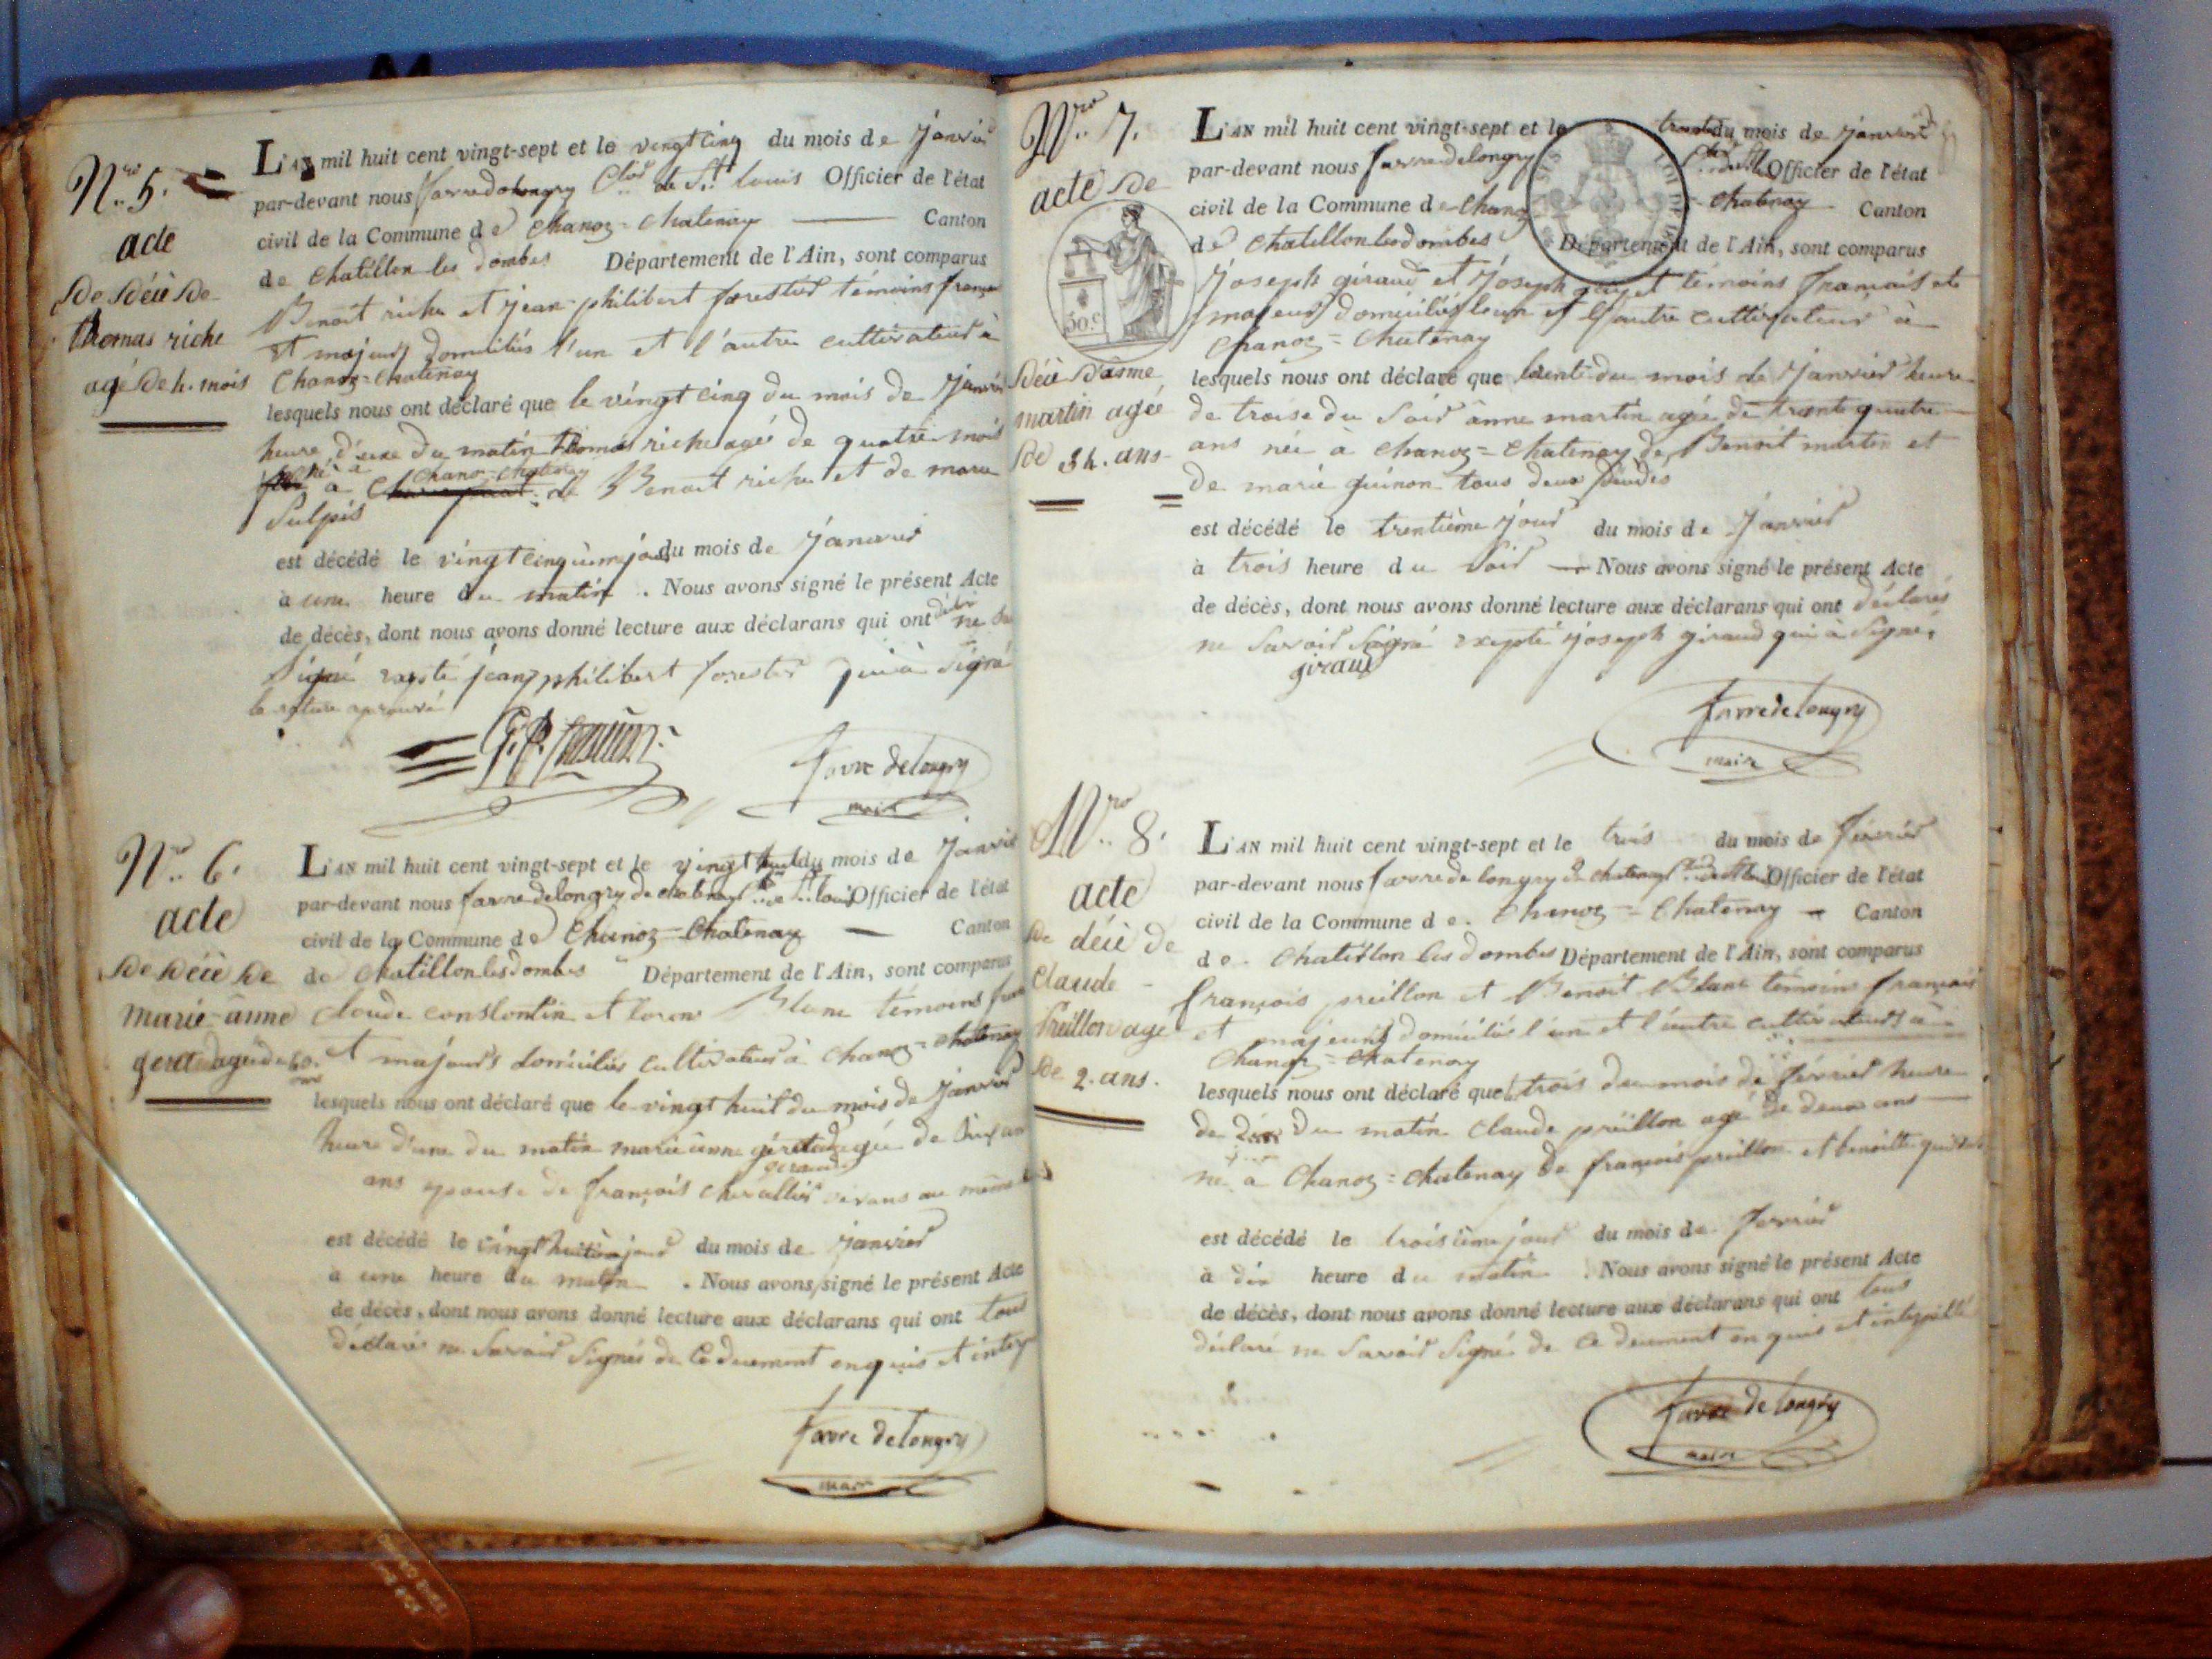 Nro 5.
acte
de décè de
thomas riche
agé de 4. mois
L'AN mil huit cent vingt-sept et le vingt cinq du mois de janvier
par-devant nous favre de longry Cher de St louis Officier de l'état
civil de la Commune de Chanoz = Chatenay Canton
de Chatillon les dombes Département de l'Ain, sont comparus
Benoit riche et jean philibert forestier témoins français
et majeurs domiciliés l'un et l'autre cultivateur à
Chanoz = Chatenay
lesquels nous ont déclaré que le vingt cinq du mois de janvier
heure d'une du matin thomas riche agé de quatre mois
né à Chanoz-Chatenay
de Benoit riche et de marie
Sulpis
est décédé le vingt cinquième jour du mois de janvier
à une heure du matin . Nous avons signé le présent Acte
de décès, dont nous avons donné lecture aux déclarans qui ont ne
Signé jean philibert forestier qui à signé
la rature aprouvé
favre de longry
maire
Nro 6.
acte
de décè de
marie-anne
L'AN mil huit cent vingt-sept et le vingt huit du mois de janvier
par-devant nous favre de longry de chatenay Cher de St louis Officier de l'état
civil de la Commune de Chanoz-Chatenay Canton
de Chatillon les dombes Département de l'Ain, sont comparus
Claude constantin et Blanc témoins
et majeurs domiciliés cultivateurs à Chanoz = Chatenay
lesquels nous ont déclaré que le vingt huit du mois de janvier
heure d'une du matin marie anne agée de
ans epouse de françois chevallier vivans au même
est décédé le vingt huitième jour du mois de janvier
à une heure du matin . Nous avons signé le présent Acte
de décès, dont nous avons donné lecture aux déclarans qui ont tous
déclarés ne Savoir Signés de Ce duement enquis et
favre de longry
maire
Nro 7.
acte de
50.c
décè d'anne
martin agée
de 34. ans
L'AN mil huit cent vingt-sept et le trente du mois de janvier
par-devant nous favre de longry Officier de l'état
civil de la Commune de Chanoz - Chatenay Canton
de Chatillon les dombes Département de l'Ain, sont comparus
joseph giraud et joseph témoins français et
majeurs domiciliés l'un et l'autre cultivateur à
Chanoz = Chatenay
lesquels nous ont déclaré que trente du mois de janvier heure
de troise du Soir anne martin agée de trante quatre
ans née à Chanoz = Chatenay de Benoit martin et
de marie guinon tous deux
est décédé le trentième jour du mois de janvier
à trois heure du Soir Nous avons signé le présent Acte
de décès, dont nous avons donné lecture aux déclarans qui ont déclarés
ne Savoir Signé excepté joseph giraud qui à Signé.
giraud
favre de longry
maire
Nro 8.
acte
de décè de
Claude
Preillon age
de 2. ans.
L'AN mil huit cent vingt-sept et le trois du mois de février
par-devant nous favre de longry de chatenay Officier de l'état
civil de la Commune de. Chanoz = Chatenay Canton
de. Chatillon les dombes Département de l'Ain, sont comparus
françois preillon et Benoit Blanc témoins français
et majeurs domiciliés l'un et l'autre cultivateurs à
Chanoz = Chatenay
lesquels nous ont déclaré que trois du mois de février heure
de dix du matin Claude preillon agé de deux ans
né à Chanoz = Chatenay de françois preillon et benoitte
est décédé le troisième jour du mois de février
à dix heure du matin . Nous avons signé le présent Acte
de décès, dont nous avons donné lecture aux déclarans qui ont tous
déclaré ne Savoir Signé de Ce duement enquis et interpellé
favre de longry
maire